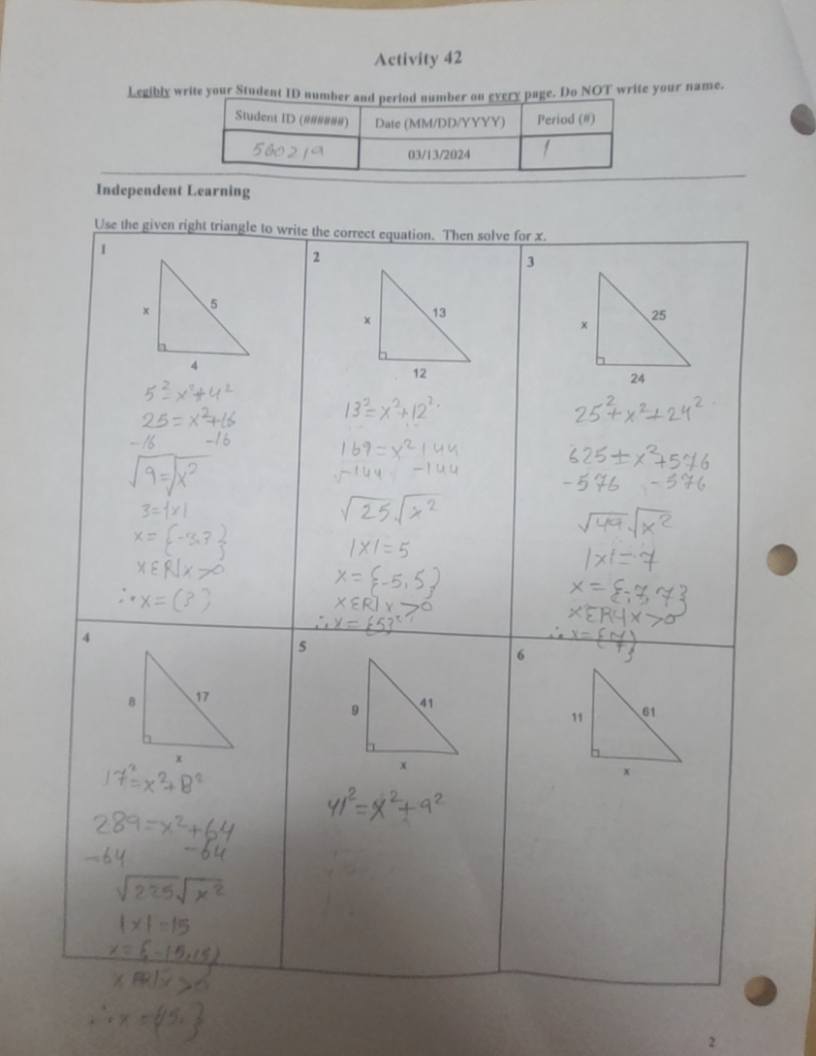 Activity 42
Legibly write your Student ID number and period number on every page. Do NOT write your name.
Student ID (######) Date (MM/DD/YYYY) Period (#)
560219 03/13/2024 1
Independent Learning
Use the given right triangle to write the correct equation. Then solve for x.
1
x 5
4
5²=x²+4²
25=x²+16
-16 -16
√9=√x²
3=|x|
x={-3,3}
xεR|x>0
∴x=(3)
2
x 13
12
13²=x²+12²
169=x²+144
-144 -144
√25 √x²
|x|=5
x={-5,5}
xεR|x>0
∴x={5}
3
x 25
24
25²+x²+24²
625=x²+576
-576 -576
√49 √x²
|x|=7
x={-7,7}
xεR|x>0
∴x={7}
4
8 17
x
17²=x²+8²
289=x²+64
-64 -64
√225 √x²
|x|=15
x={-15,15}
x εR|x>0
∴x={15,}
5
9 41
x
41²=x²+9²
6
11 61
x
2